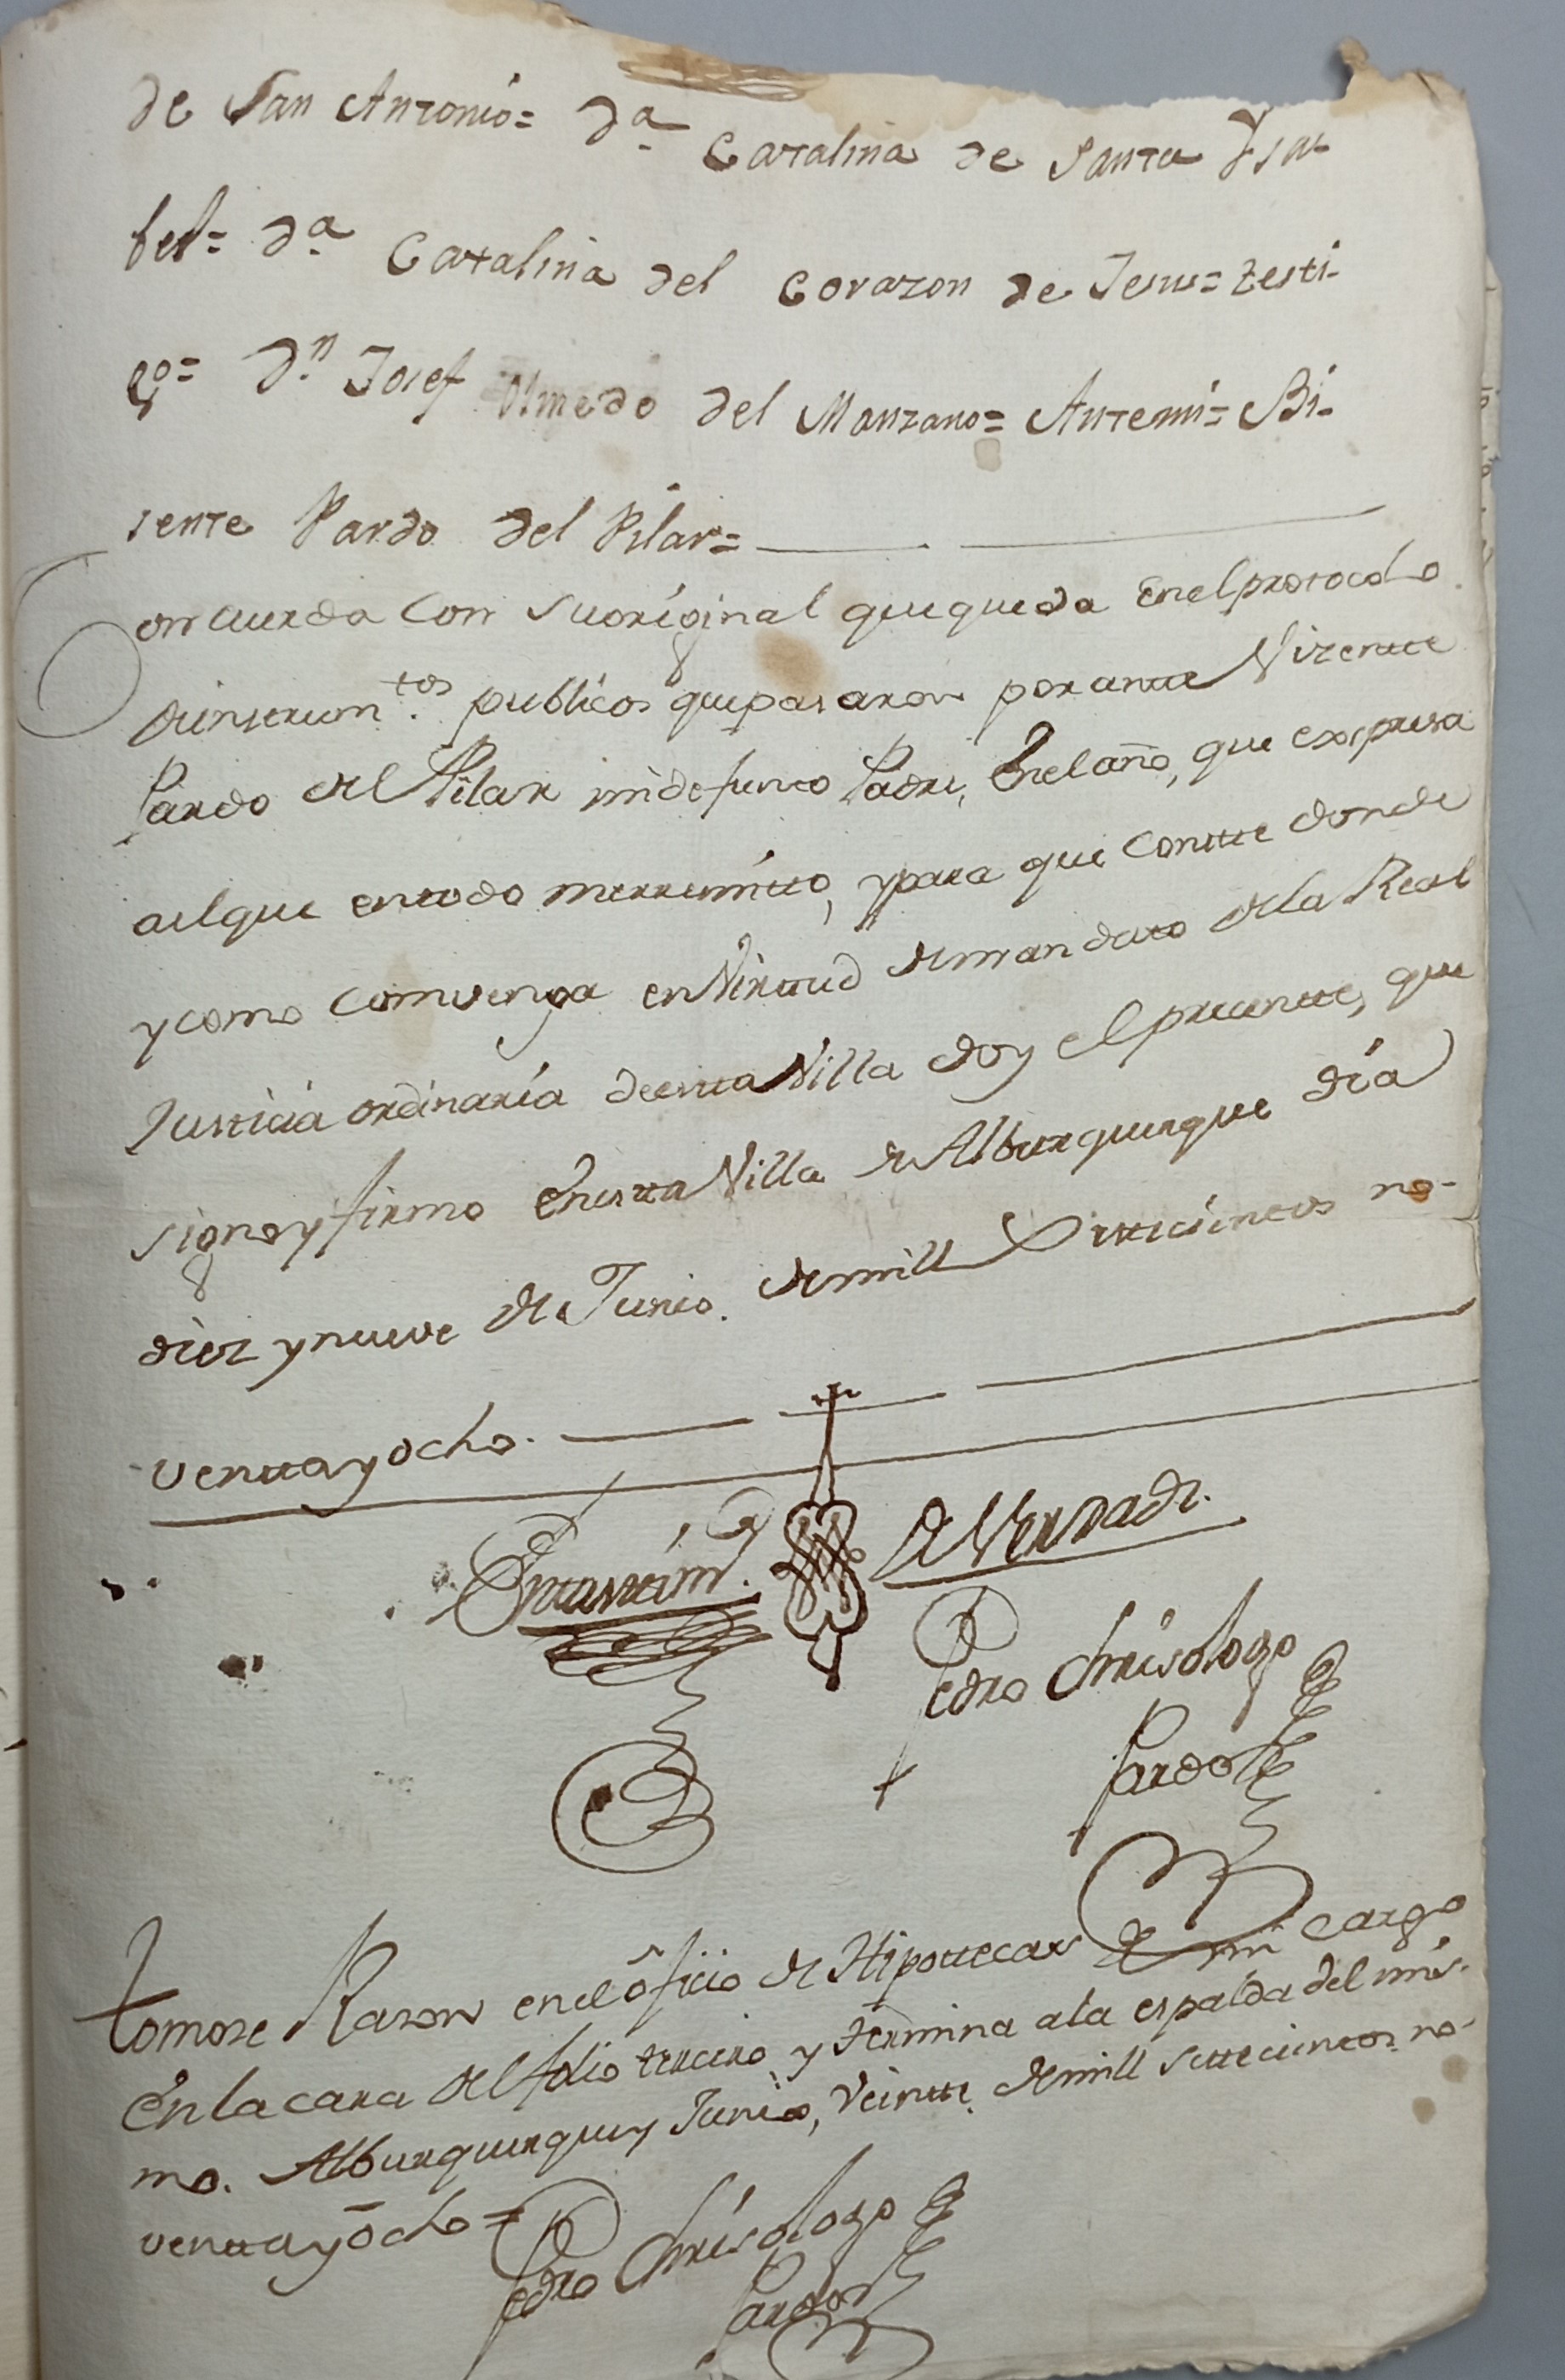 de San Antonio= Dª Catalina de Santa Ysa-
bel= Dª Catalina del Corazon de Jesus= testi-
gº= Dn. Josef Olmedo del Manzano= Antemi= Bi-
sente Pardo del Pilar=
Concuerda con su original que queda en el protocolo
de instrumtos. publicos que pasaron por antte Vizentte
Pardo del Pilar mi defunto Padre, en el año, que exspresa
a el que en todo me rremitto, y para que constte donde
y como comvenga en Virttud de mandato de la Real
Justicia ordinaria de estta Villa doy el presentte, que
signo y firmo en estta Villa de Alburquerque dia
diez y nueve de Junio de mill settecientos no-
ventta y ocho.
En testtim. de Verdad.
Pedro Chrisologo
Pardo
tomose Razon en el oficio de Hipottecas de mi cargo
en la cara del folio tercero y termina a la espalda del mis-
mo. Alburquerque y Junio, Veintte de mill settecientos no-
ventta y ocho=
Pedro Chrisologo
Pardo